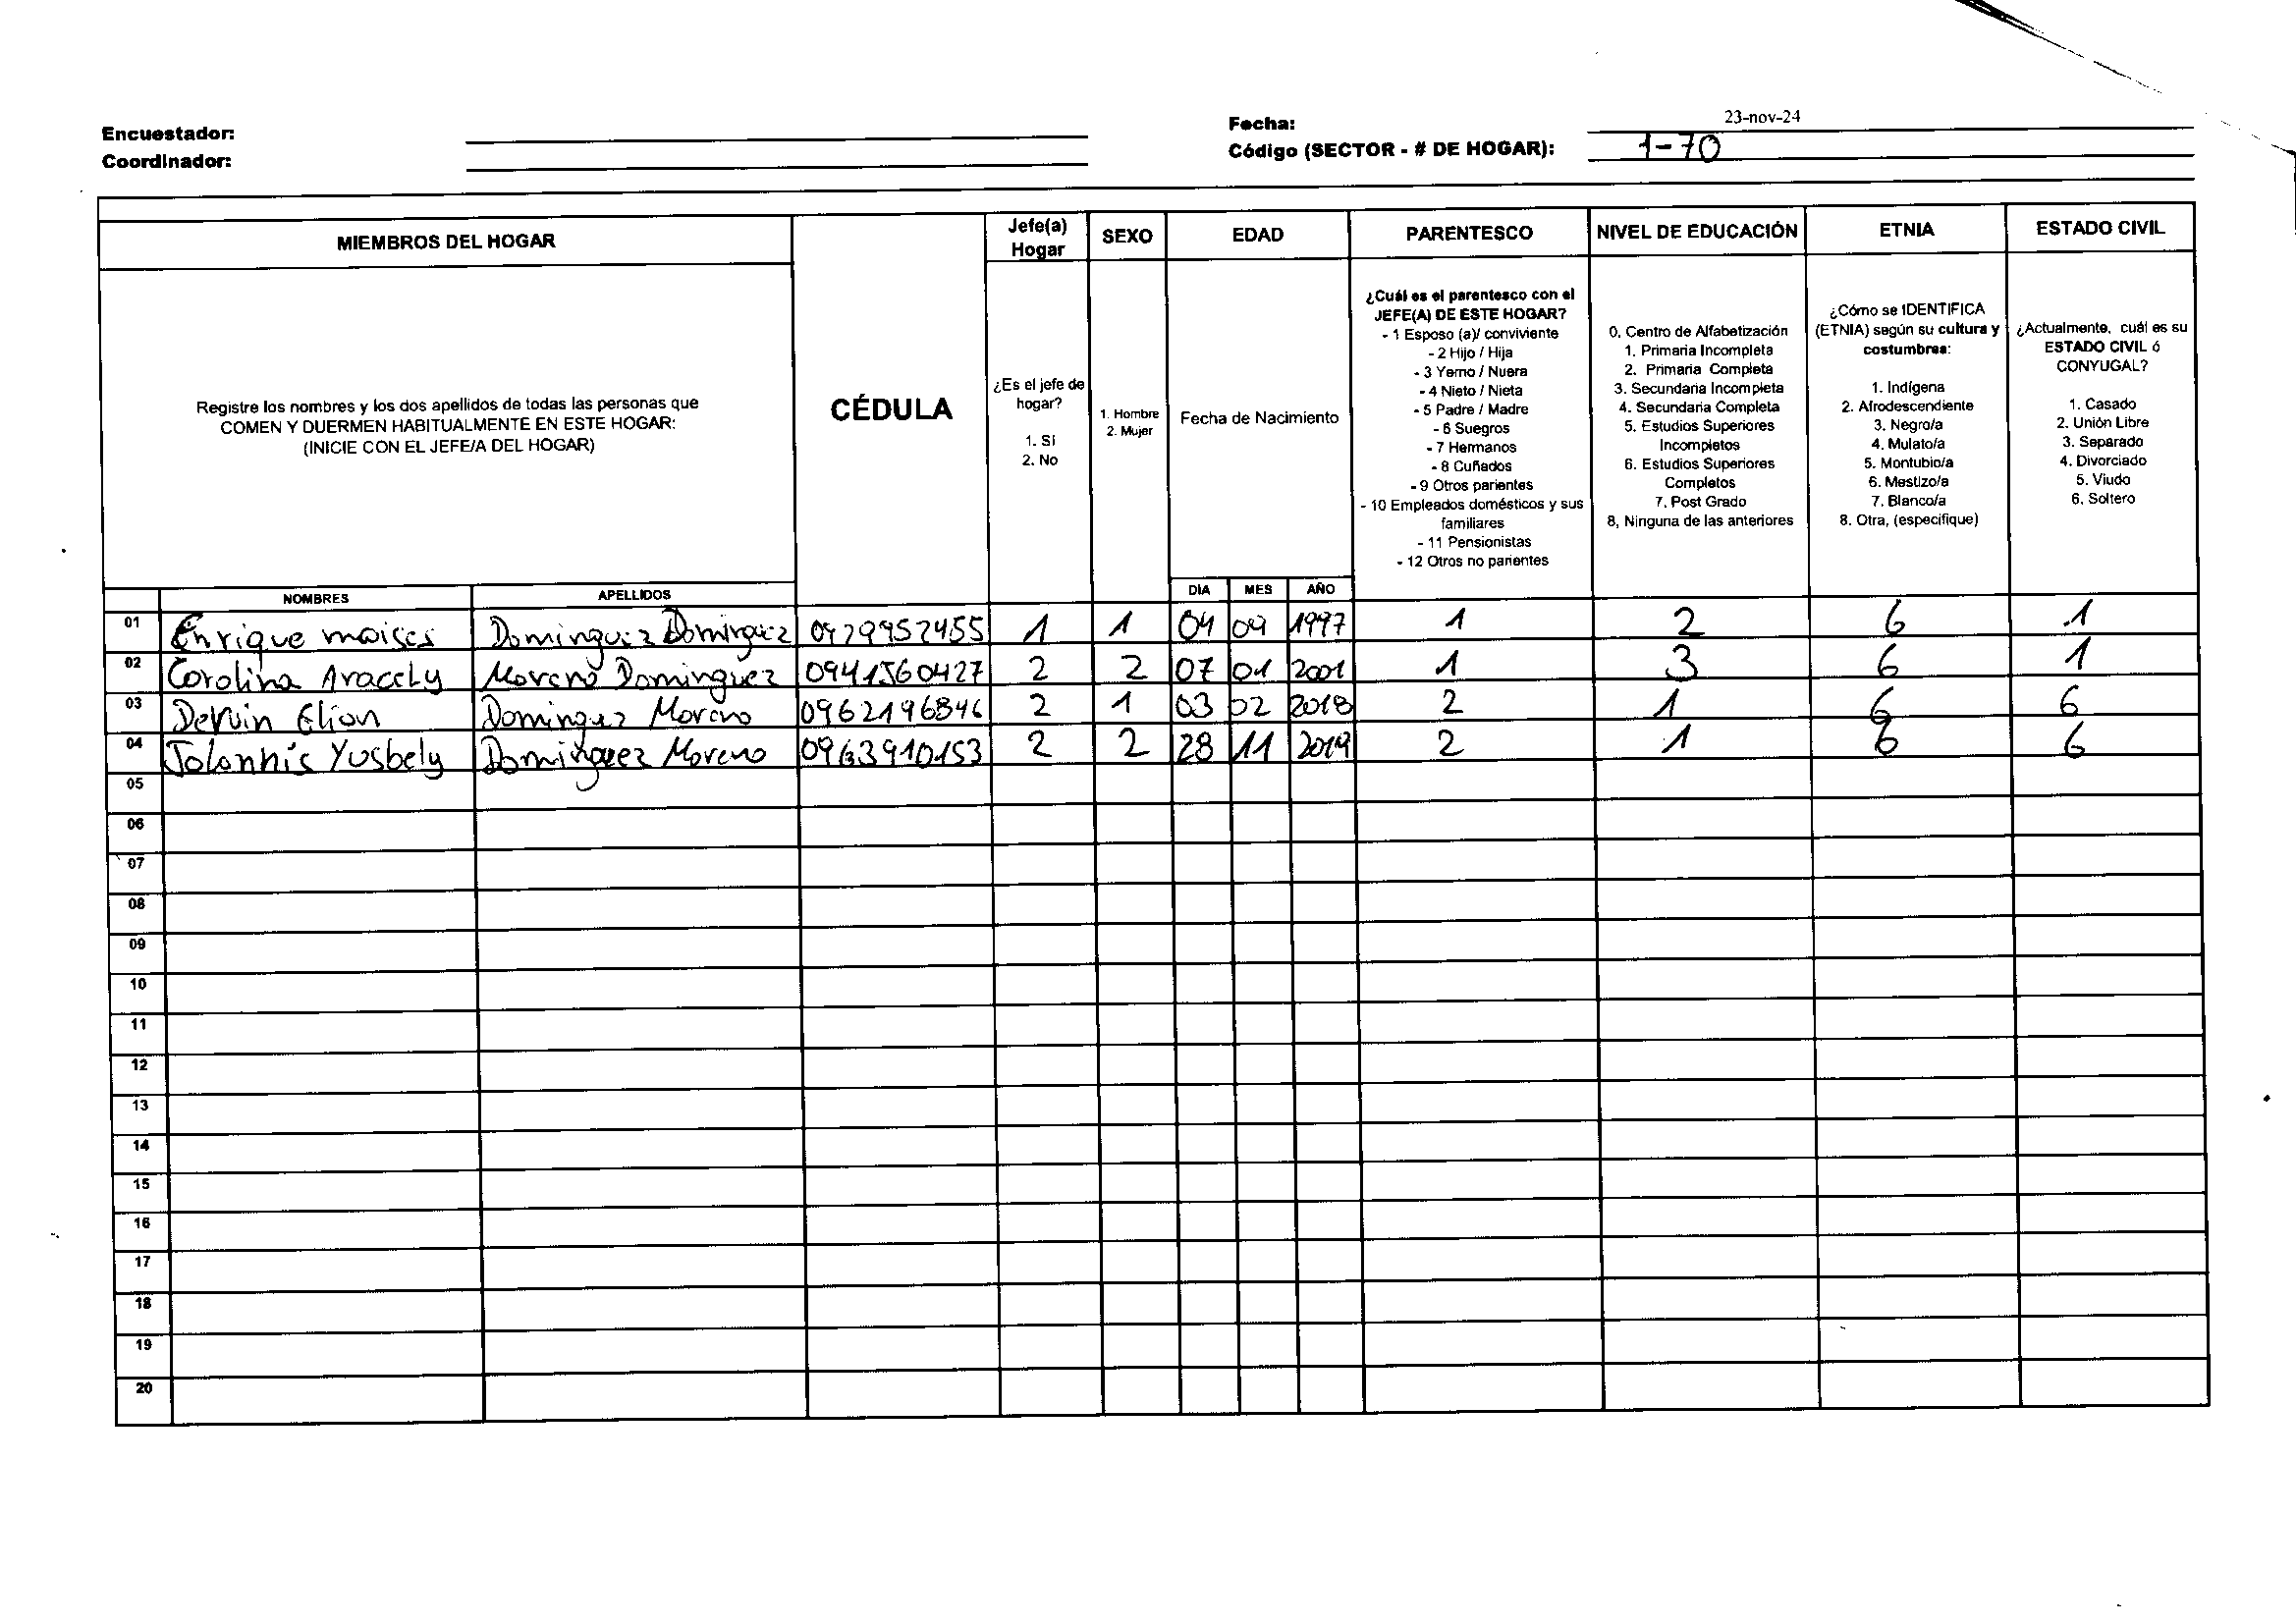 Encuestador:
Coordinador:
Fecha: 23-nov-24
Código (SECTOR - # DE HOGAR): 1-70
MIEMBROS DEL HOGAR
CÉDULA
Jefe(a) Hogar
SEXO
EDAD
PARENTESCO
NIVEL DE EDUCACIÓN
ETNIA
ESTADO CIVIL
Registre los nombres y los dos apellidos de todas las personas que
COMEN Y DUERMEN HABITUALMENTE EN ESTE HOGAR:
(INICIE CON EL JEFE/A DEL HOGAR)
¿Es el jefe de
hogar?
1. Sí
2. No
1. Hombre
2. Mujer
Fecha de Nacimiento
¿Cuál es el parentesco con el
JEFE(A) DE ESTE HOGAR?
- 1 Esposo (a)/ conviviente
- 2 Hijo / Hija
- 3 Yerno / Nuera
- 4 Nieto / Nieta
- 5 Padre / Madre
- 6 Suegros
- 7 Hermanos
- 8 Cuñados
- 9 Otros parientes
- 10 Empleados domésticos y sus
familiares
- 11 Pensionistas
- 12 Otros no parientes
0. Centro de Alfabetización
1. Primaria Incompleta
2. Primaria Completa
3. Secundaria Incompleta
4. Secundaria Completa
5. Estudios Superiores
Incompletos
6. Estudios Superiores
Completos
7. Post Grado
8, Ninguna de las anteriores
¿Cómo se IDENTIFICA
(ETNIA) según su cultura y
costumbres:
1. Indígena
2. Afrodescendiente
3. Negro/a
4. Mulato/a
5. Montubio/a
6. Mestizo/a
7. Blanco/a
8. Otra, (especifique)
¿Actualmente, cuál es su
ESTADO CIVIL ó
CONYUGAL?
1. Casado
2. Unión Libre
3. Separado
4. Divorciado
5. Viudo
6. Soltero
NOMBRES APELLIDOS DIA MES AÑO
01 Enrique moises Dominguez Dominguez 0929957455 1 1 04 09 1997 1 2 6 1
02 Carolina Aracely Moreno Dominguez 0941560427 2 2 07 01 2001 1 3 6 1
03 Dervin Elian Dominguez Moreno 0962196846 2 1 03 02 2018 2 1 6 6
04 Jolannis Yusbely Dominguez Moreno 0963910153 2 2 28 11 2019 2 1 6 6
05
06
07
08
09
10
11
12
13
14
15
16
17
18
19
20